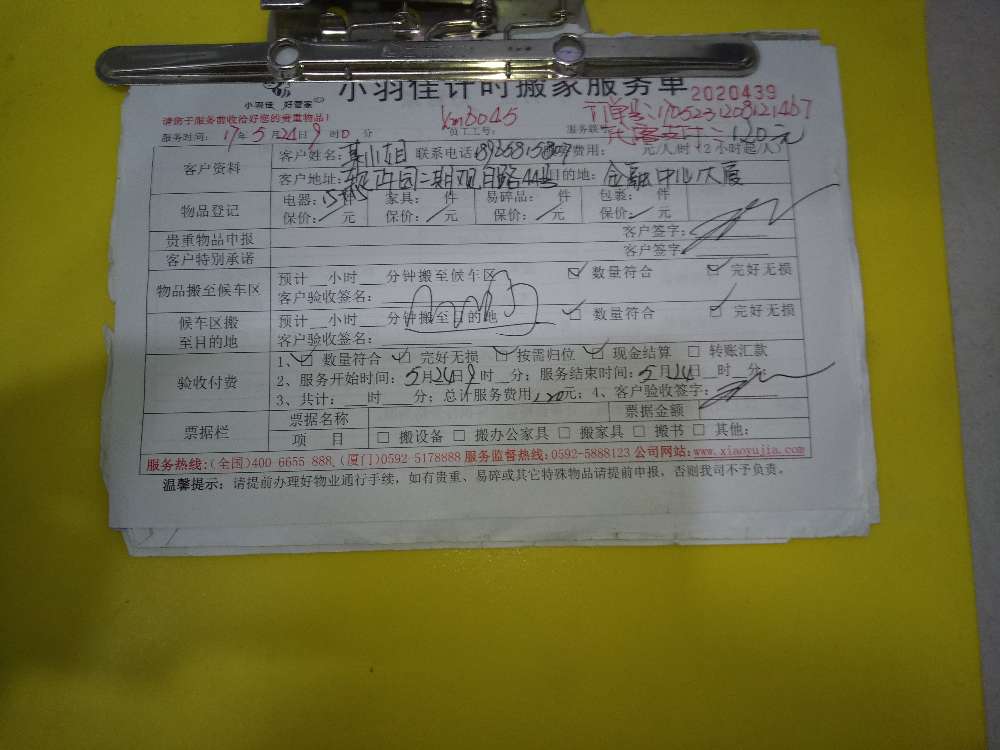 小羽佳计时搬家服务单
2020439
小羽佳 好管家
请您于服务前收拾好您的贵重物品！
订单号：170523120812146
服务时间：17年5月24日9时0分 员工工号：
120元
客户资料 客户姓名： 小姐 联系电话： 费用： 元/人/时（2小时起/人）
客户地址： 二期观日路44号 目的地：金融中心大厦
物品登记 电器：15件 家具： 件 易碎品： 件 包裹： 件
保价： 元 保价： 元 保价： 元 保价： 元
贵重物品申报 客户签字：
客户特别承诺 客户签字：
物品搬至候车区 预计__小时__分钟搬至候车区 ☑ 数量符合 ☑ 完好无损
客户验收签名：
候车区搬至目的地 预计__小时__分钟搬至目的地 ☑ 数量符合 ☑ 完好无损
客户验收签名：
验收付费 1、☑ 数量符合 ☑ 完好无损 ☑ 按需归位 ☑ 现金结算 □ 转账汇款
2、服务开始时间：5月24日9时__分；服务结束时间：5月24日__时__分；
3、共计：__时__分；总计服务费用120元；4、客户验收签字：
票据栏 票据名称 票据金额
项 目 □ 搬设备 □ 搬办公家具 □ 搬家具 □ 搬书 □ 其他：
服务热线：(全国)400 6655 888、(厦门)0592-5178888 服务监督热线：0592-5888123 公司网站：www.xiaoyujia.com
温馨提示：请提前办理好物业通行手续，如有贵重、易碎或其它特殊物品请提前申报，否则我司不予负责。